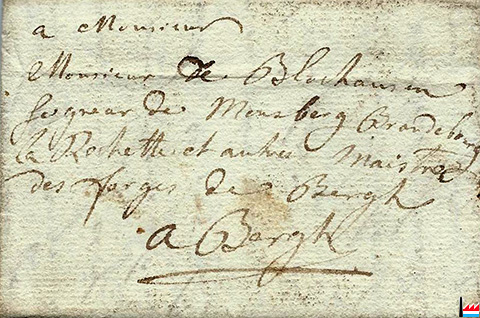 a Monsieur
Monsieur de Blochausen
seigneur de Monsberg Brandebourg
la Rochette et autres Maistre
des forges de Bergh
a Bergh